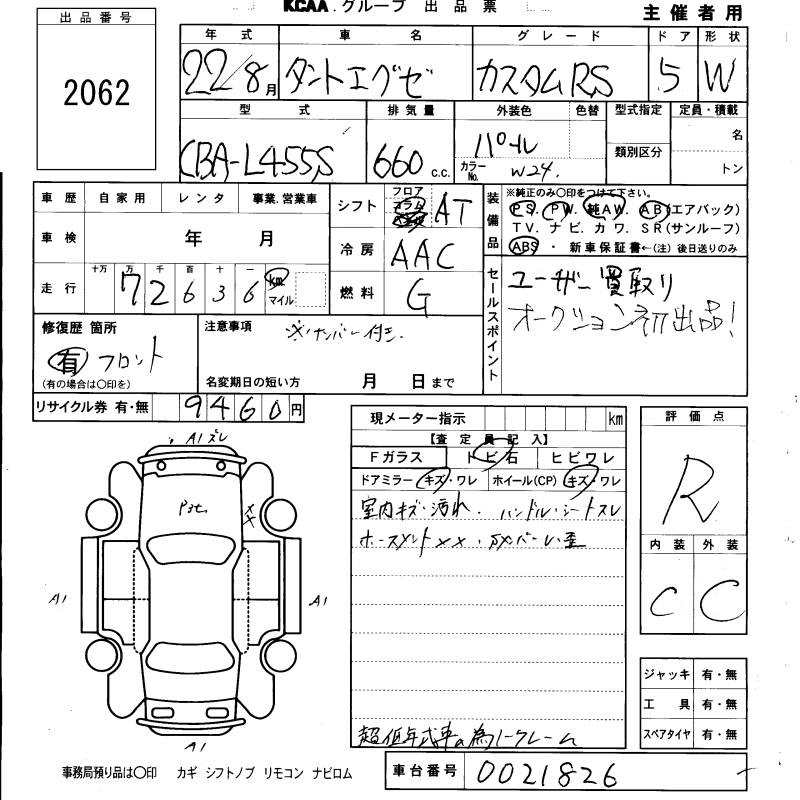 KCAA.グループ 出品票
主催者用
出品番号
2062
年式 車名 グレード ドア 形状
22/8月 タントエグゼ カスタムRS 5 W
型式 排気量 外装色 色替 型式指定 定員・積載
CBA-L455S 660 c.c. パール カラーNo. W24. 類別区分 名 トン
車歴 自家用 レンタ 事業.営業車
車検 年 月
走行 十万 万 千 百 十 一
72636 km マイル
シフト フロア コラム AT
冷房 AAC
燃料 G
装備品 ※純正のみ○印をつけて下さい。
PS. PW. 純AW. AB(エアバック)
TV. ナビ. カワ. SR(サンルーフ)
ABS ・ 新車保証書←(注) 後日送りのみ
セールスポイント
ユーザー買取り
オークション初出品!
修復歴 箇所
有 フロント
(有の場合は○印を)
注意事項 ※ナンバー付き
名変期日の短い方 月 日まで
リサイクル券 有・無 9460円
現メーター指示 km
【査定員記入】
Fガラス トビ石 ヒビワレ
ドアミラー キズ・ワレ ホイール(CP) キズ・ワレ
室内キズ・汚れ. ハンドル・シートスレ
超低年式車の為ノークレーム
評価点
R
内装 外装
C C
ジャッキ 有・無
工具 有・無
スペアタイヤ 有・無
A1ズレ
XX
A1 A1
A1
事務局預り品は○印 カギ シフトノブ リモコン ナビロム
車台番号 0021826